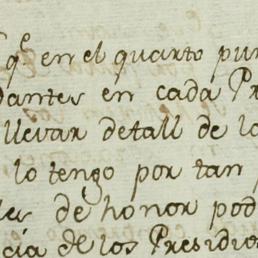 qᵉ en el quarto pun
dantes en cada Pr
llevar detall de lo
lo tengo por tan
les de honor pod
cia de los Presidio